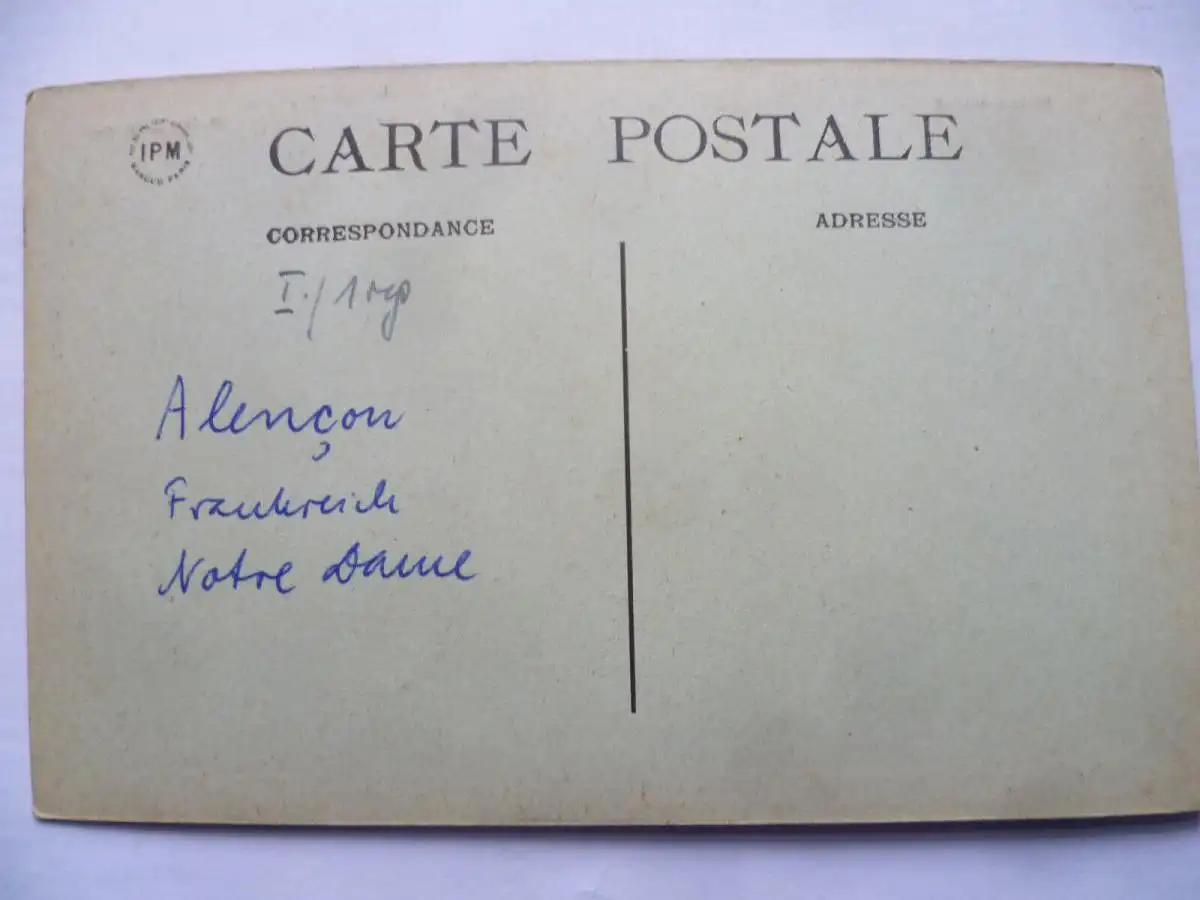 IPM
CARTE POSTALE
CORRESPONDANCE
ADRESSE
I./1
Alençon
Frankreich
Notre Dame